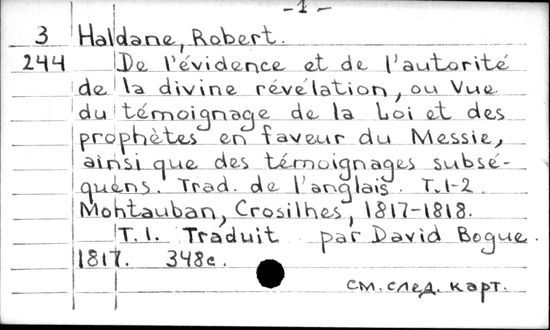 -1-
3 Haldane, Robert.
244 De l'évidence et de l'autorité
de la divine révélation, ou Vue
du témoignage de la Loi et des
prophètes en faveur du Messie,
ainsi que des témoignages subsé-
quens. Trad. de l'anglais. T.1-2.
Montauban, Crosilhes, 1817-1818.
T.1. Traduit par David Bogue.
1817. 348c.
см. след. карт.